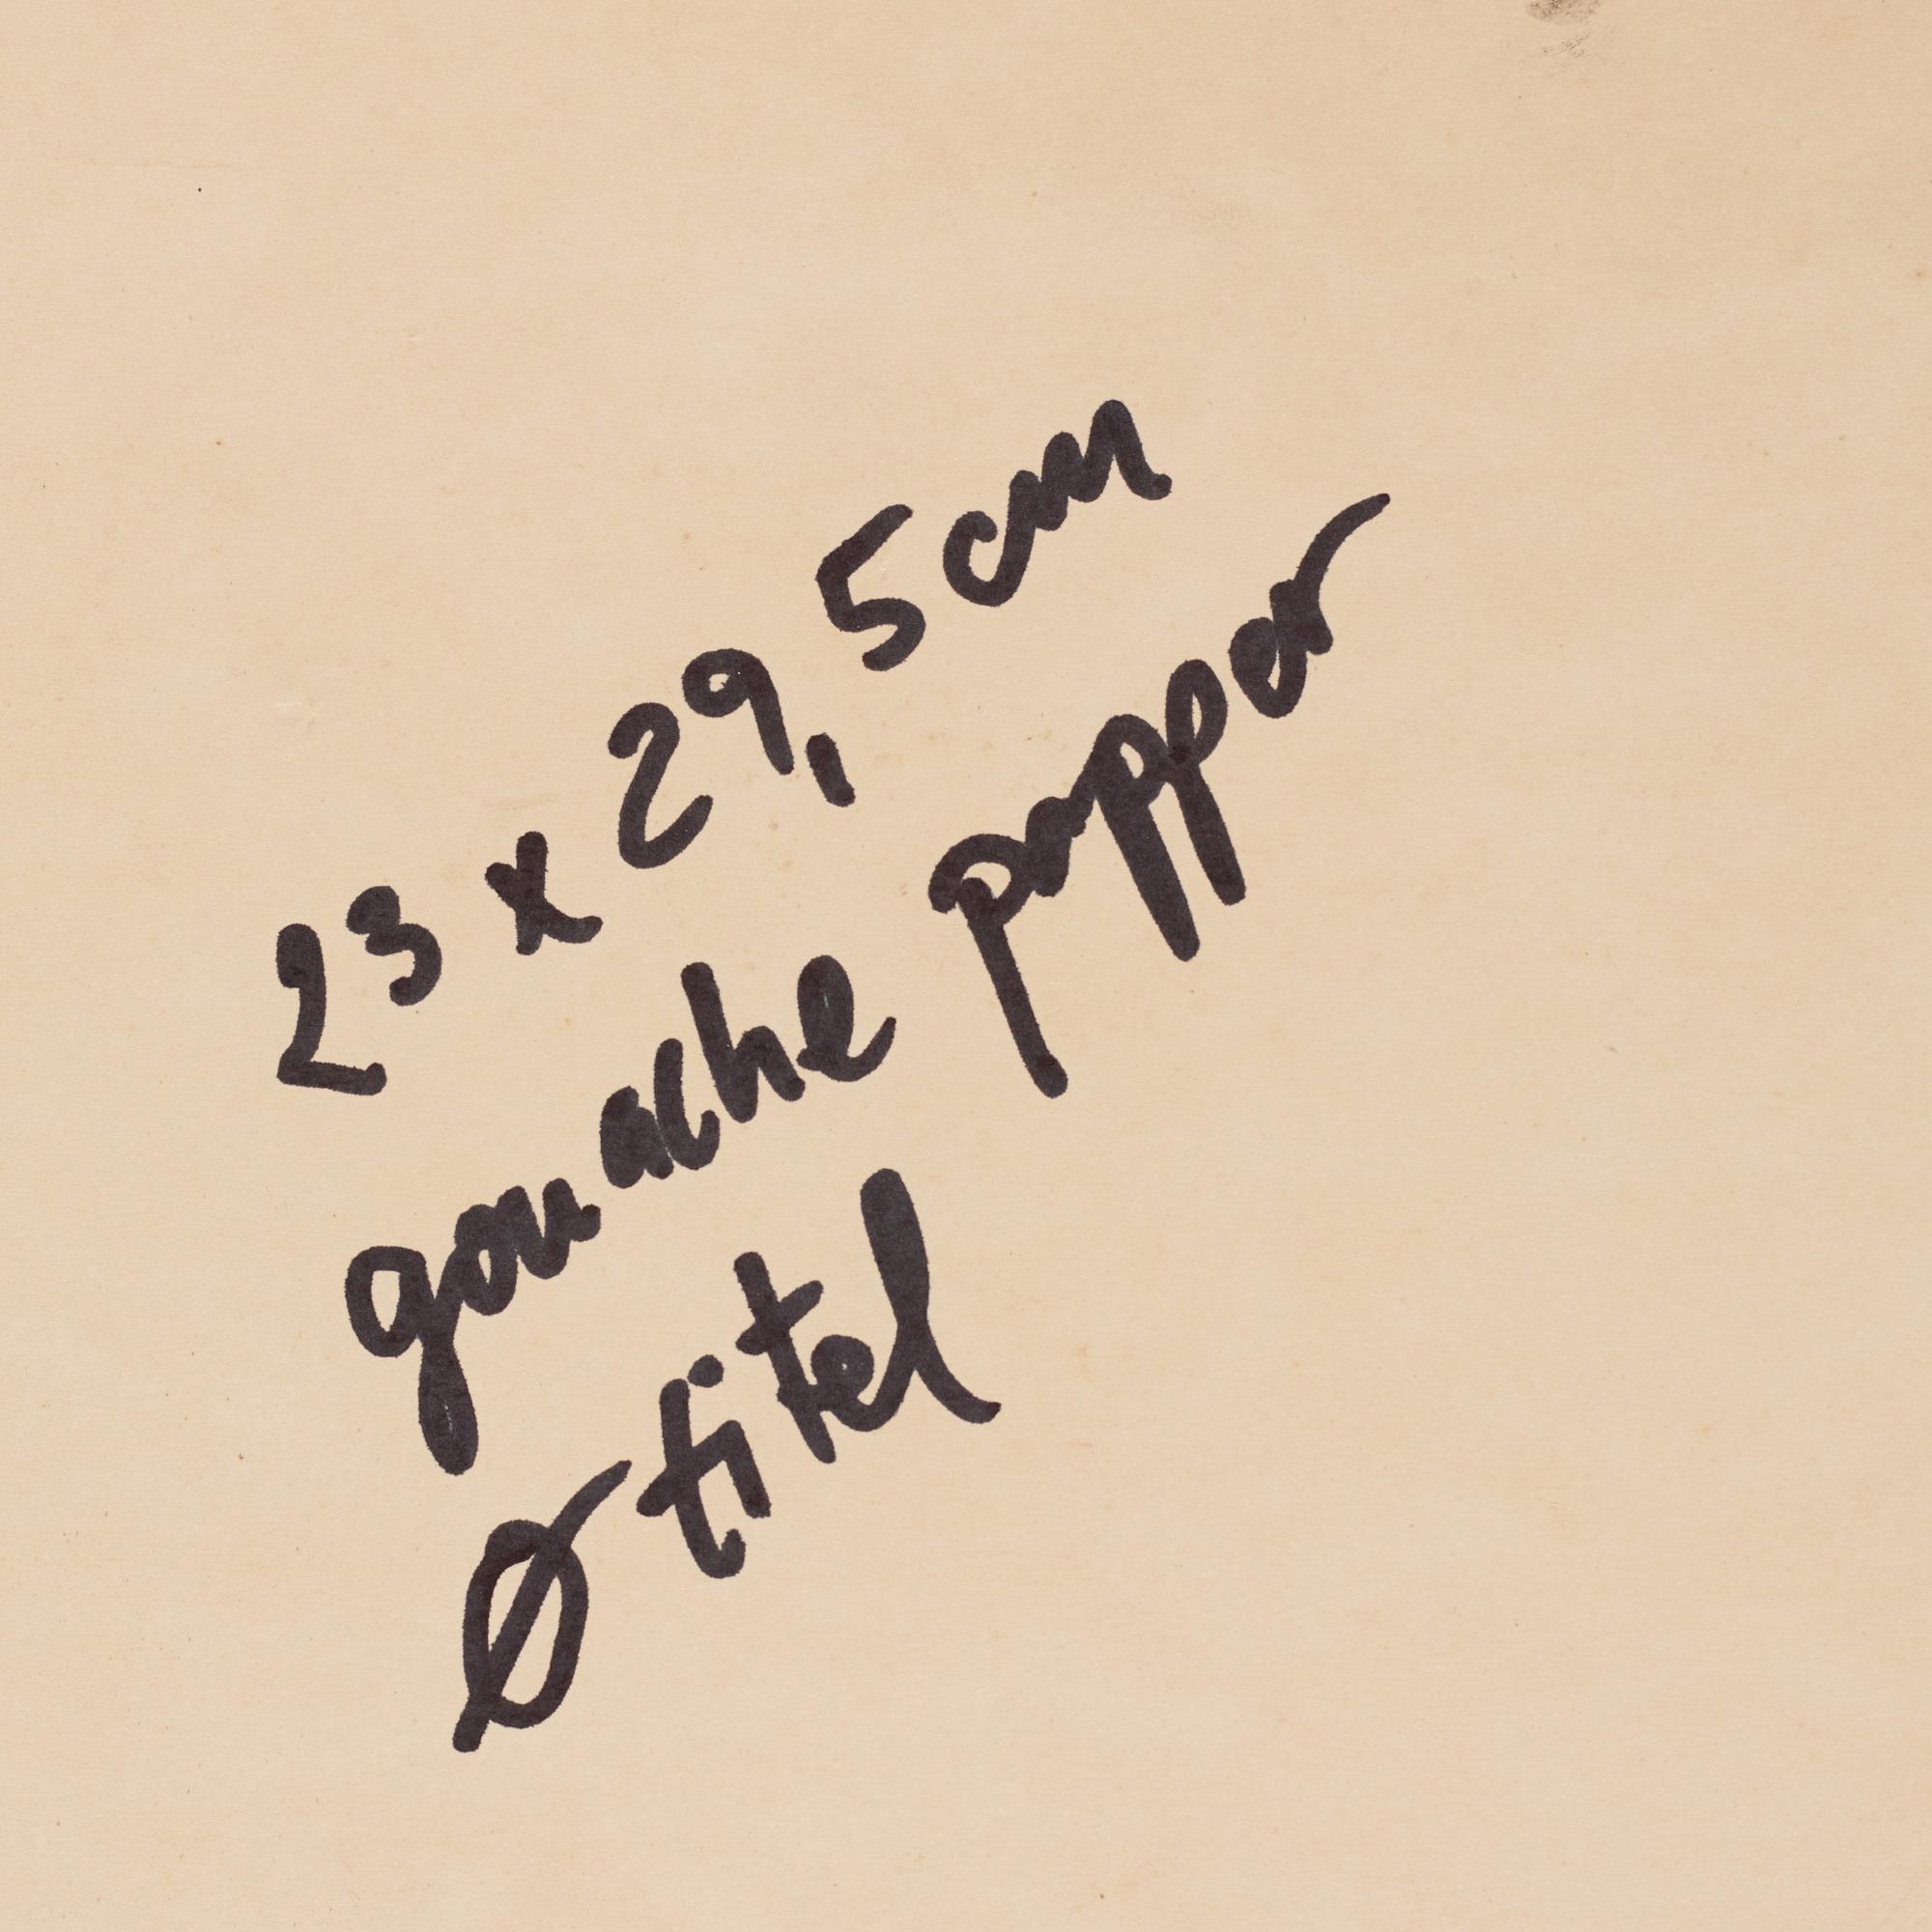 23 x 29,5 cm
gouache papper
Ø titel